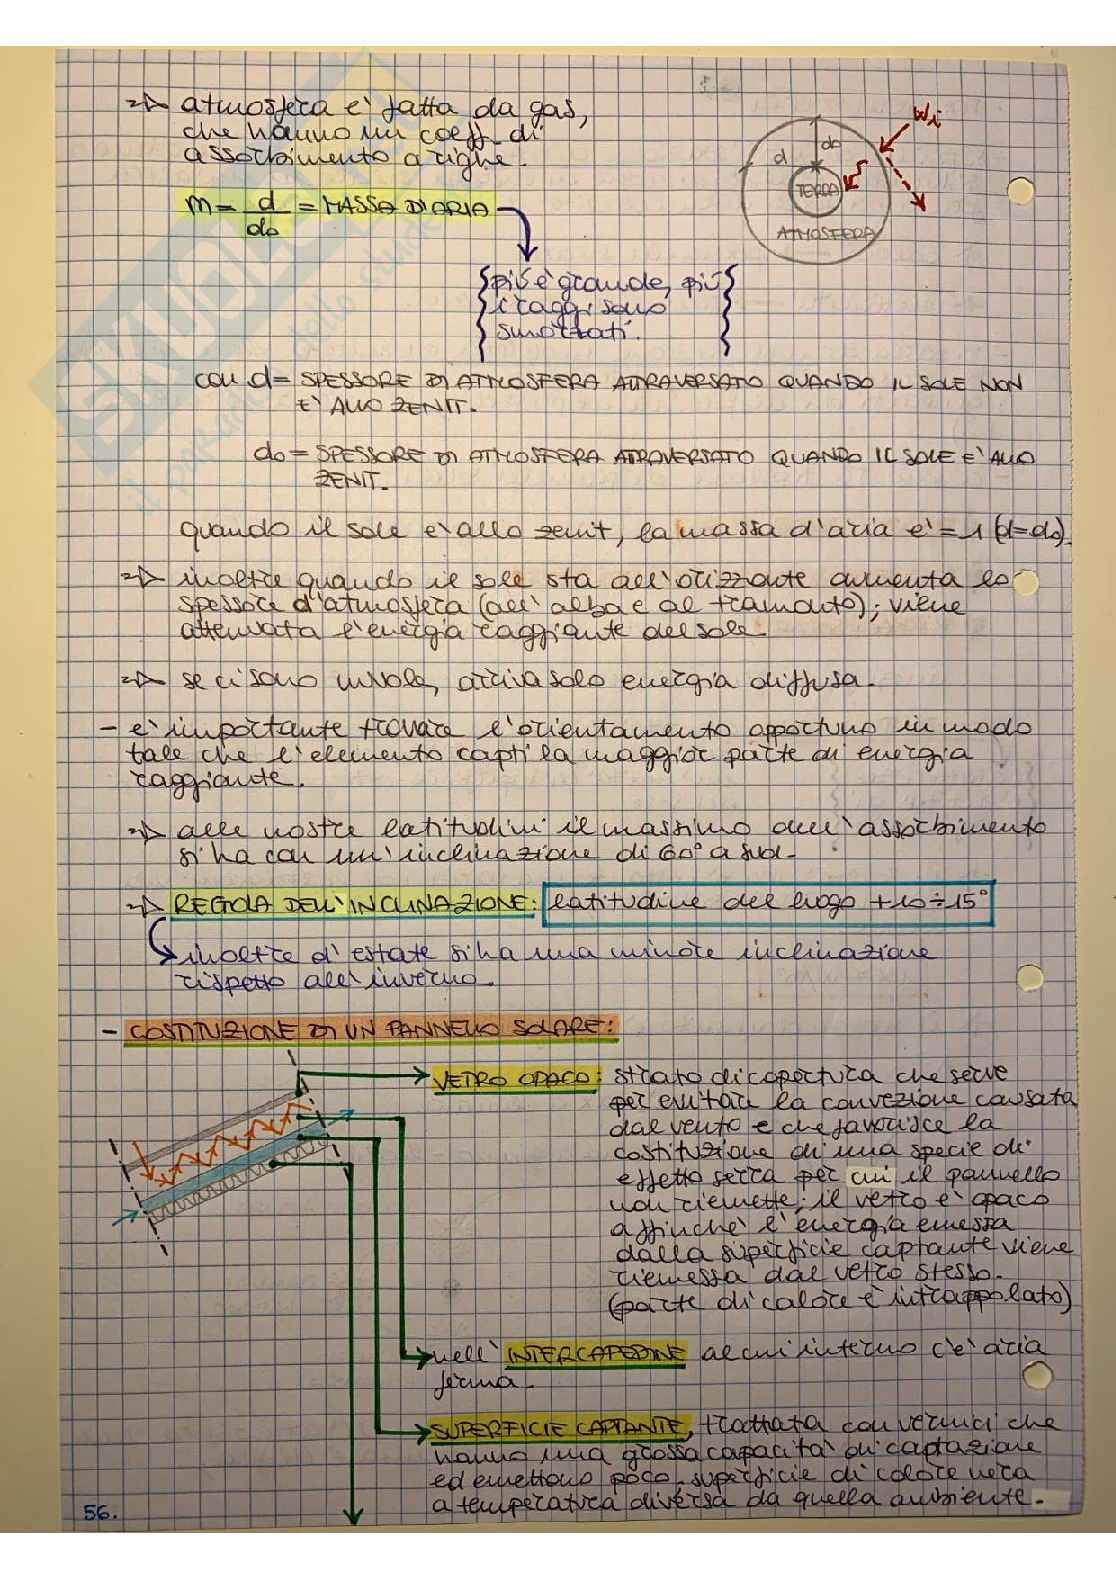 => atmosfera e' fatta da gas,
che hanno un coeff. di
assorbimento a righe.
Wi
do
d
TERRA
ATMOSFERA
m = d/do = MASSA D'ARIA
più è grande, più
i raggi sono
smorzati.
con d = SPESSORE DI ATMOSFERA ATTRAVERSATO QUANDO IL SOLE NON
E' ALLO ZENIT.
do = SPESSORE DI ATMOSFERA ATTRAVERSATO QUANDO IL SOLE E' ALLO
ZENIT.
quando il sole e' allo zenit, la massa d'aria e' = 1 (d=do).
=> inoltre quando il sole sta all'orizzonte aumenta lo
spessore d'atmosfera (all'alba e al tramonto); viene
attenuata l'energia raggiante del sole.
=> se ci sono nuvole, arriva solo energia diffusa.
- e' importante trovare l'orientamento opportuno in modo
tale che l'elemento capti la maggior parte di energia
raggiante.
=> alle nostre latitudini il massimo dell'assorbimento
si ha con un'inclinazione di 60° a sud.
=> REGOLA DELL'INCLINAZIONE: latitudine del luogo + 10 ÷ 15°
inoltre d'estate si ha una minore inclinazione
rispetto all'inverno.
- COSTITUZIONE DI UN PANNELLO SOLARE:
VETRO OPACO: strato di copertura che serve
per evitare la convezione causata
dal vento e che favorisce la
costituzione di una specie di
effetto serra per cui il pannello
non riemette; il vetro e' opaco
affinche' l'energia emessa
dalla superficie captante viene
riemessa dal vetro stesso.
(parte di calore è intrappolato)
nell'INTERCAPEDINE al cui interno c'e' aria
ferma.
SUPERFICIE CAPTANTE, trattata con vernici che
hanno una grossa capacita' di captazione
ed emettono poco. superficie di colore nera
a temperatura diversa da quella ambiente.
56.